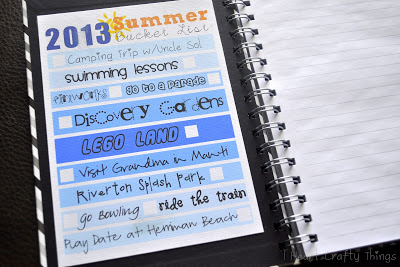 2013 Summer
Bucket List
Camping Trip w/Uncle Sol
swimming lessons
Fireworks go to a parade
Discovery Gardens
LEGO LAND
Visit Grandma in Manti
Riverton Splash Park
go Bowling ride the train
Play Date at Herman Beach
I Heart Crafty Things